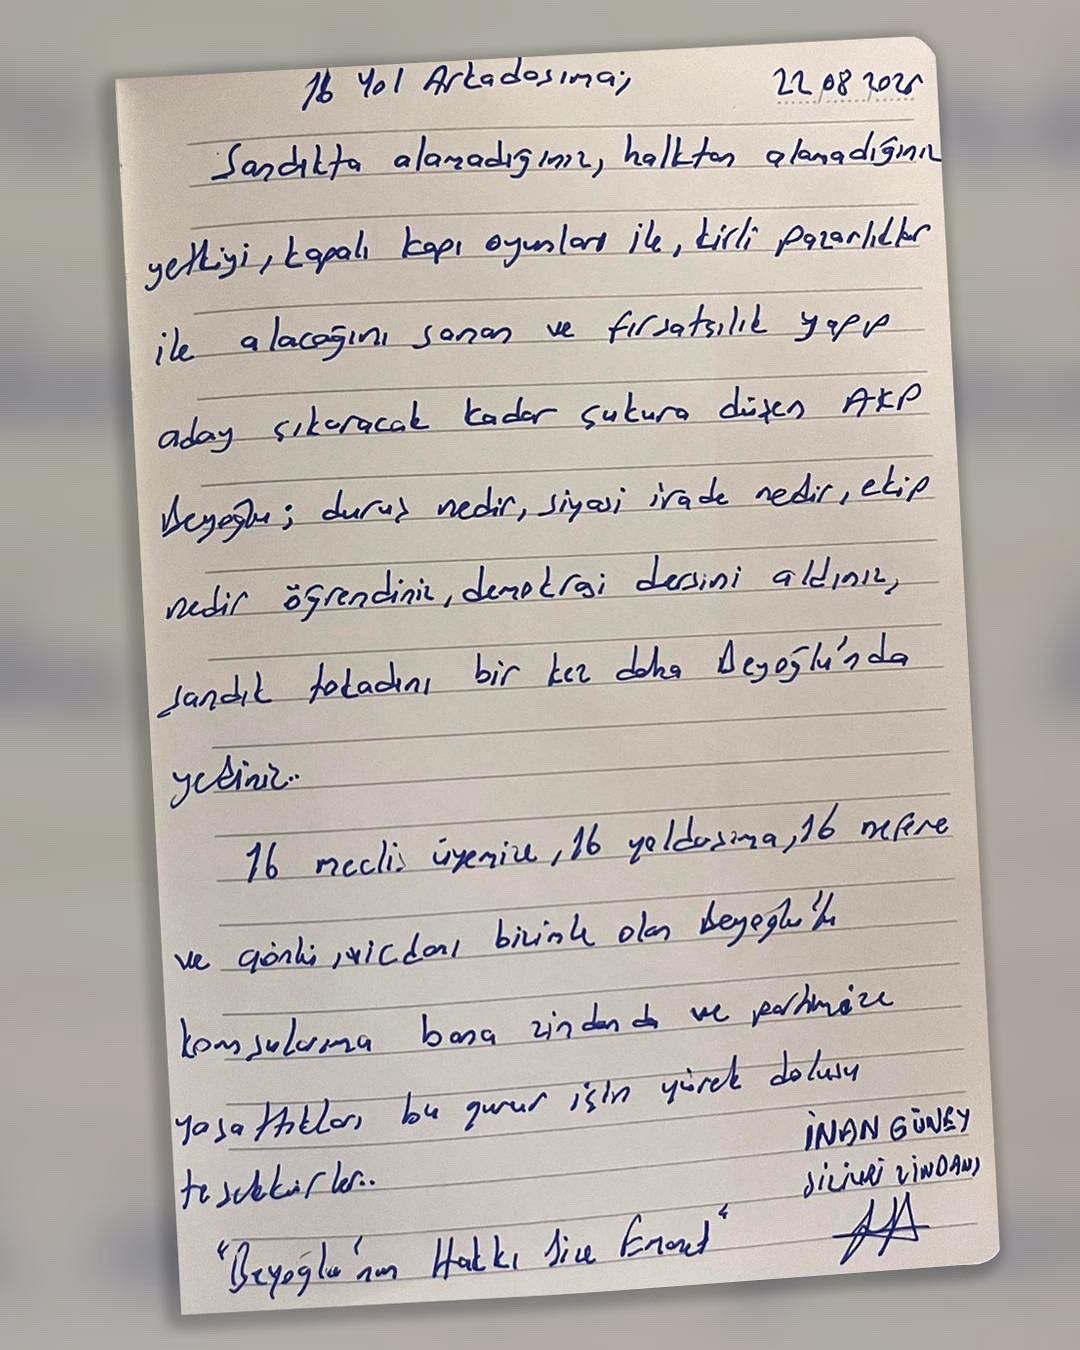 16 Yol Arkadaşıma;
22.08.2025
Sandıkta alamadığınız, halktan alamadığınız
yetkiyi, kapalı kapı oyunları ile, kirli pazarlıklar
ile alacağını sanan ve fırsatçılık yapıp
aday çıkaracak kadar çukura düşen AKP
Beyoğlu; duruş nedir, siyasi irade nedir, ekip
nedir öğrendiniz, demokrasi dersini aldınız,
sandık tokadını bir kez daha Beyoğlu'nda
yediniz..
16 meclis üyemize, 16 yoldaşıma, 16 nefere
ve gönlü, vicdanı bizimle olan Beyoğlu'lu
komşularıma bana zindanda ve partimize
yaşattıkları bu gurur için yürek dolusu
teşekkürler..
İNAN GÜNEY
SİLİVRİ ZİNDANI
"Beyoğlu'nun Hakkı Size Emanet"